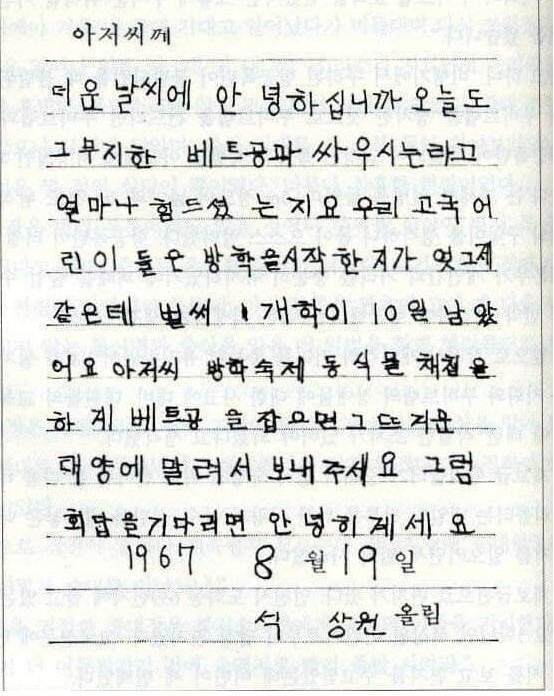 아저씨께
더운 날씨에 안녕하십니까 오늘도
그무지한 베트공과 싸우시는라고
얼마나 힘드셨는지요 우리 고국 어
린이들은 방학을시작한지가 엊그제
같은데 벌써 개학이 10일 남았
어요 아저씨 방학숙제 동식물 채집을
하게 베트공을 잡으면그뜨거운
태양에 말려서 보내주세요 그럼
회답을기다리면 안녕히계세요
1967 8월 19일
석 상원 올림